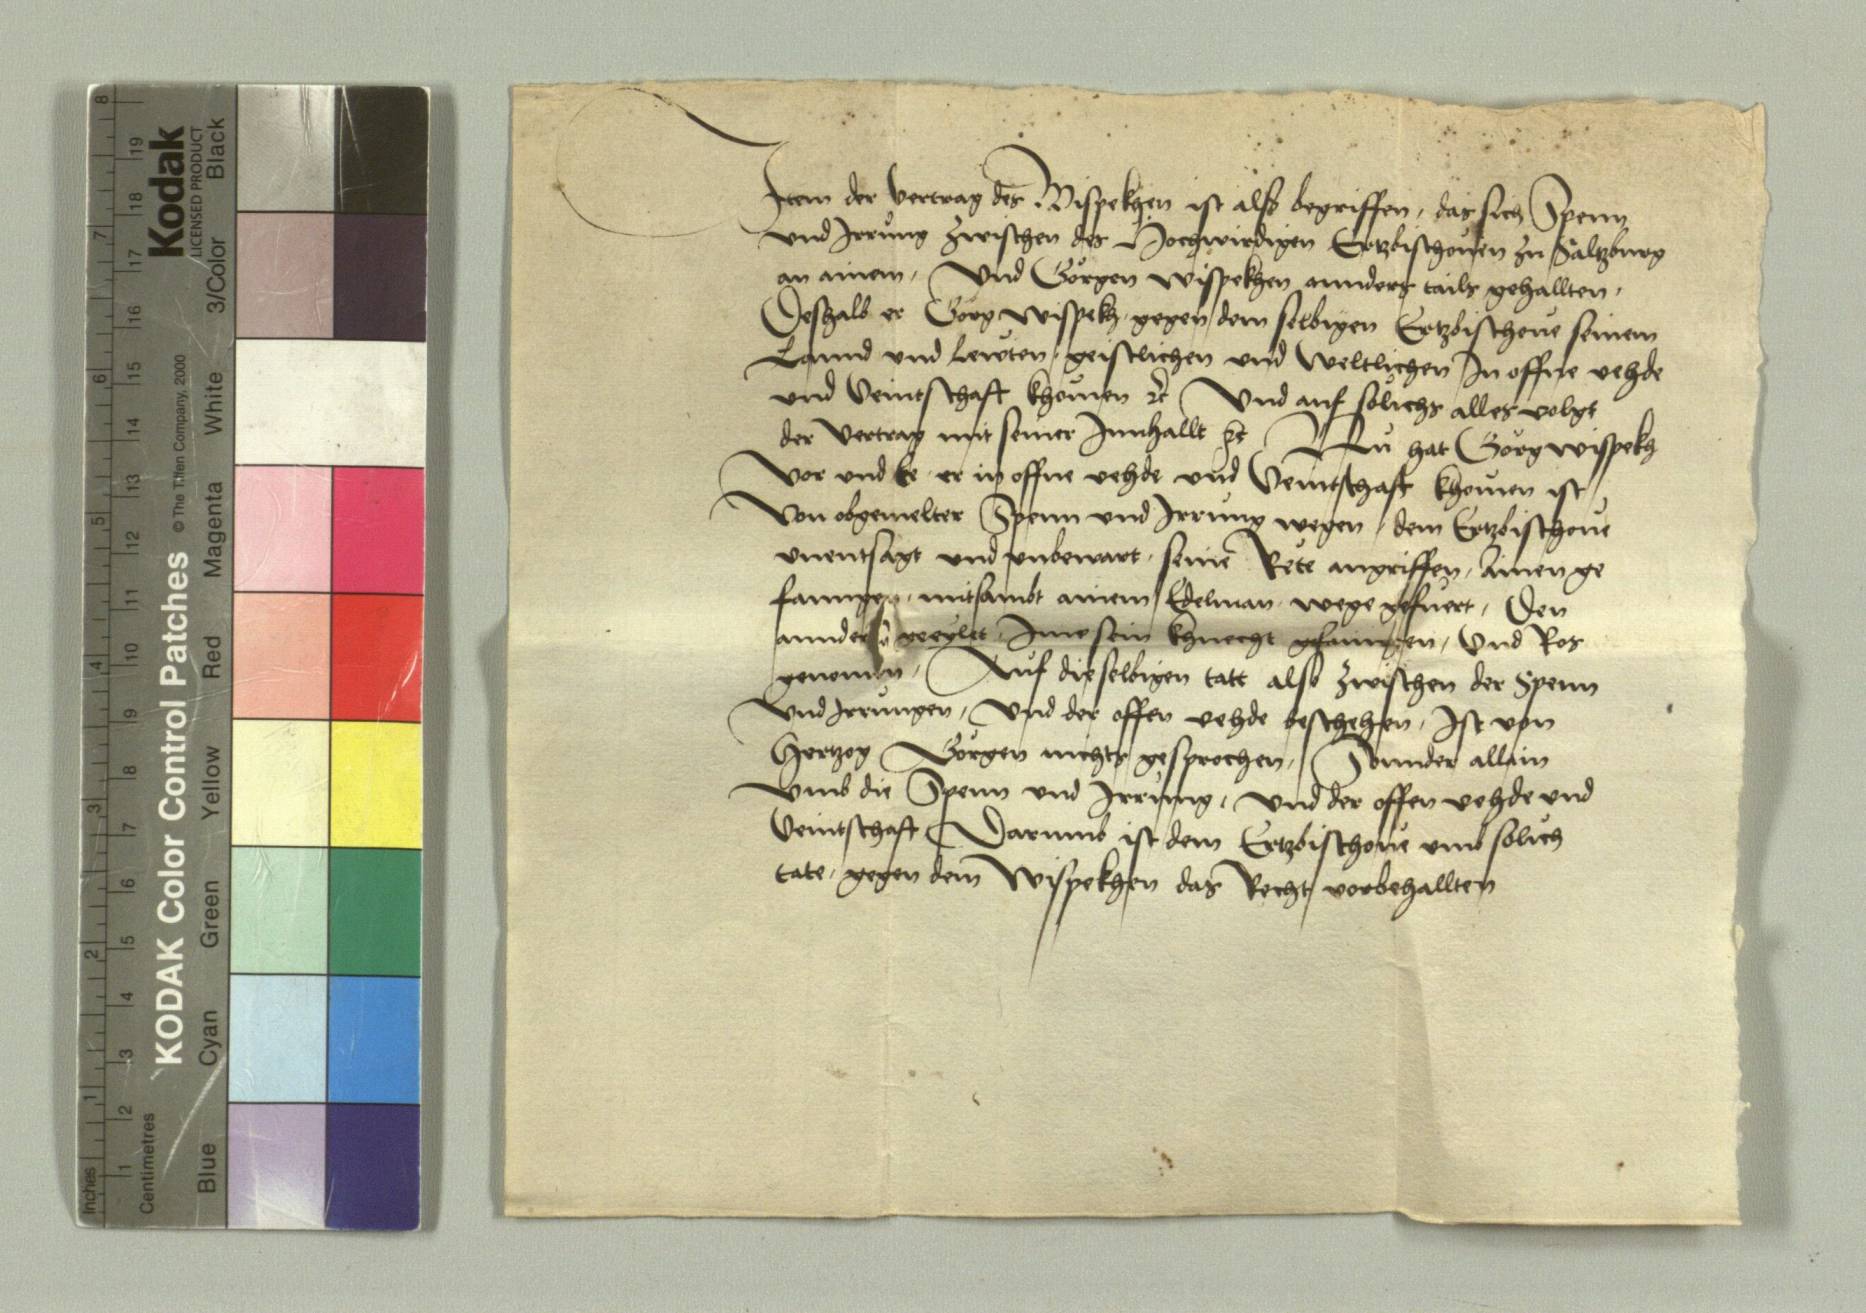 Item der Vertrag des Wispekhen ist also begriffen, das sich Spenn
und Irrung zwischen des Hochwirdigen Ertzbischouen zu Saltzburg
an ainem, Und Görgen wispekhen annders tails gehallten,
Deshalb er Görg wispekh gegen dem selbigen Ertzbischoue seinem
Lannd und Lewten, geistlichen und Weltlichen In offne vehde
und Veintschaft khomen etc Und auf sölichs alles volgt
der Vertrag mit seiner Innhallt etc Nu hat Görg wispekh
Vor und Ee er in offne vehde und Veintschaft khomen ist
Von obgemelter Spenn und Irrung wegen, dem Ertzbischoue
unentsagt und unbewart, seine Rete angriffen, Ainen ge
fanngen, mitsambt ainem Edelman, wege gefuert, Den
annder geeylet, Ime sein knecht gefanngen, Und Ros
genomen, Auf dieselbigen tatt also zwischen der Spenn
Und Irrungen, Und der offen vehde beschehen, Ist von
Hertzog Görgen nichts gesprochen, Sonnder allain
Umb die Spenn und Irrung, Und der offen vehde und
Veintschaft Darumb ist dem Ertzbischoue umb solich
tate, gegen dem Wispekhen das Recht vorbehallten
KODAK Color Control Patches © The Tiffen Company, 2000
Kodak
LICENSED PRODUCT
Blue Cyan Green Yellow Red Magenta White 3/Color Black
Inches 1 2 3 4 5 6 7 8
Centimetres 1 2 3 4 5 6 7 8 9 10 11 12 13 14 15 16 17 18 19